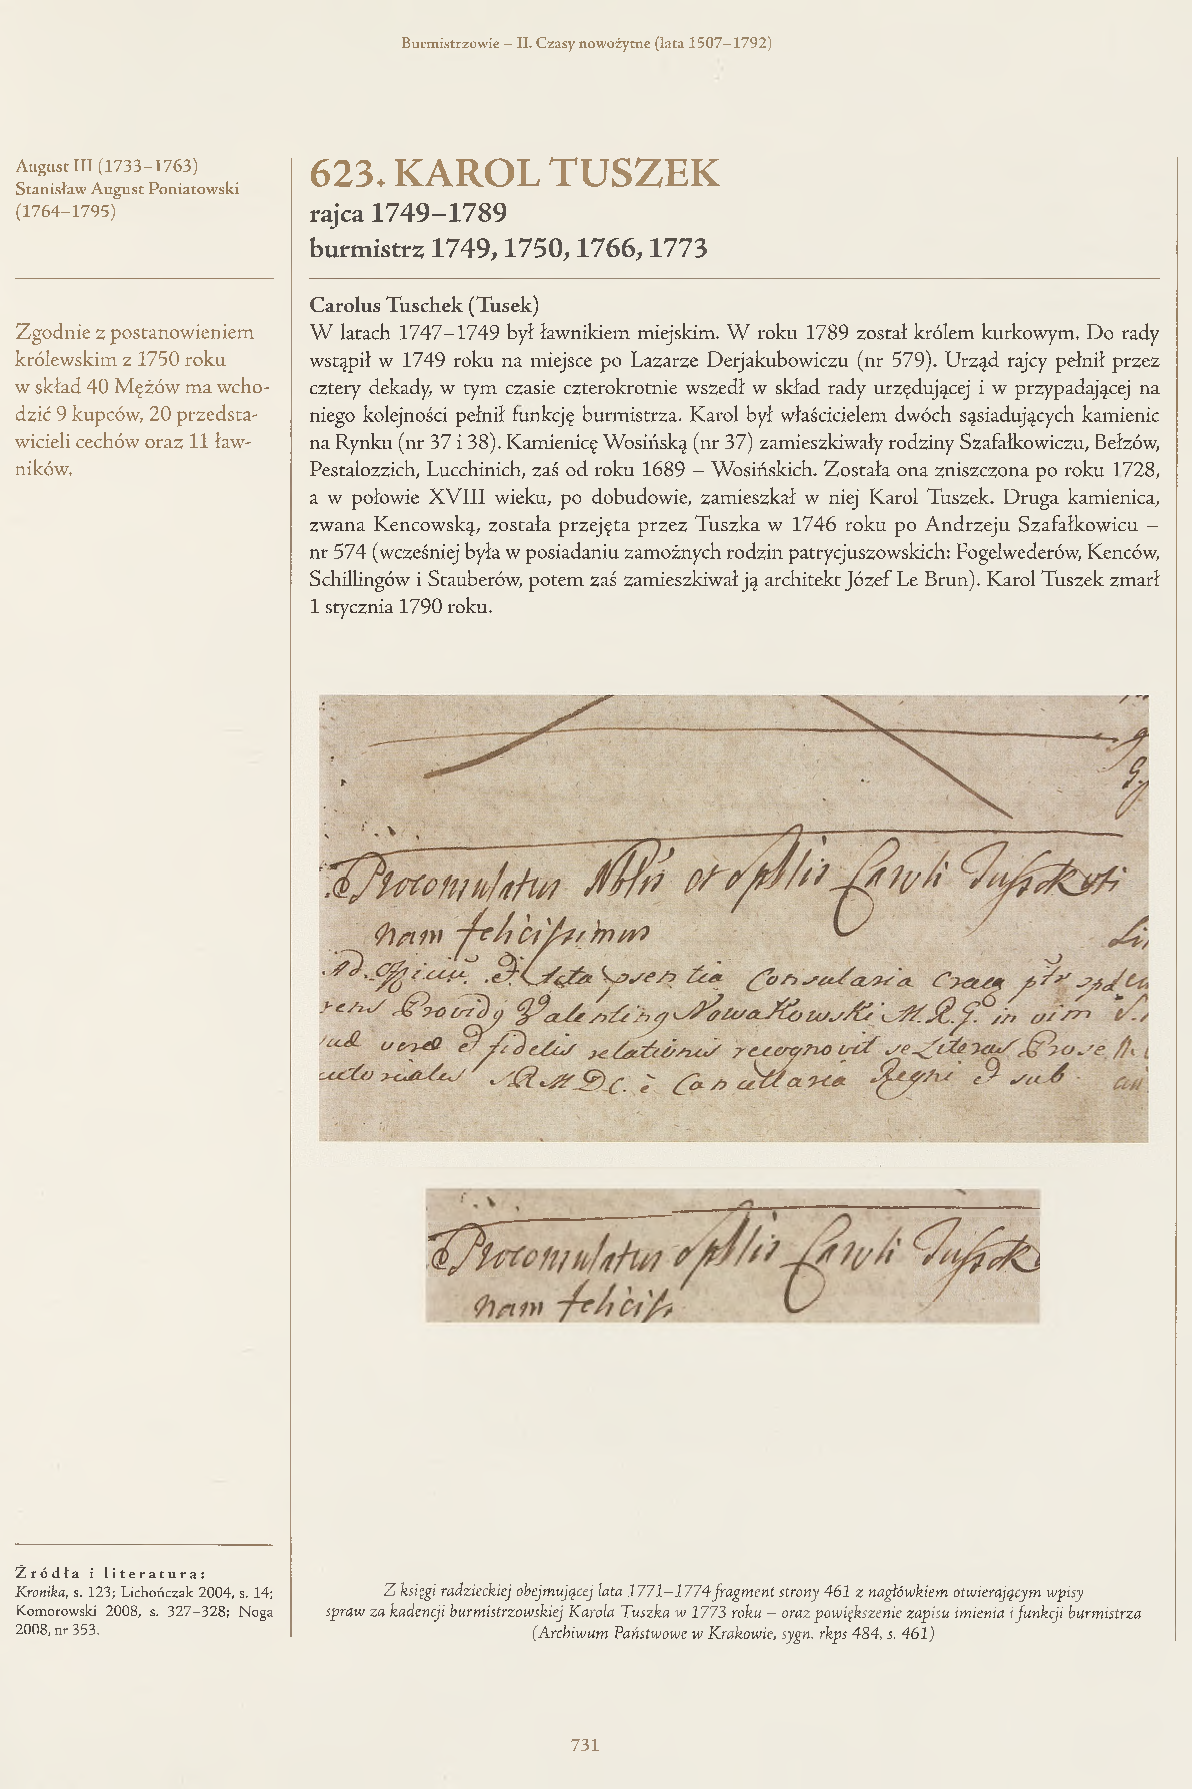 Burmistrzowie – II. Czasy nowożytne (lata 1507–1792)
August III (1733–1763)
Stanisław August Poniatowski
(1764–1795)
Zgodnie z postanowieniem
królewskim z 1750 roku
w skład 40 Mężów ma wcho-
dzić 9 kupców, 20 przedsta-
wicieli cechów oraz 11 ław-
ników.
623. KAROL TUSZEK
rajca 1749–1789
burmistrz 1749, 1750, 1766, 1773
Carolus Tuschek (Tusek)
W latach 1747–1749 był ławnikiem miejskim. W roku 1789 został królem kurkowym. Do rady
wstąpił w 1749 roku na miejsce po Lazarze Derjakubowiczu (nr 579). Urząd rajcy pełnił przez
cztery dekady, w tym czasie czterokrotnie wszedł w skład rady urzędującej i w przypadającej na
niego kolejności pełnił funkcję burmistrza. Karol był właścicielem dwóch sąsiadujących kamienic
na Rynku (nr 37 i 38). Kamienicę Wosińską (nr 37) zamieszkiwały rodziny Szafałkowiczu, Bełzów,
Pestalozzich, Lucchinich, zaś od roku 1689 – Wosińskich. Została ona zniszczona po roku 1728,
a w połowie XVIII wieku, po dobudowie, zamieszkał w niej Karol Tuszek. Druga kamienica,
zwana Kencowską, została przejęta przez Tuszka w 1746 roku po Andrzeju Szafałkowicu –
nr 574 (wcześniej była w posiadaniu zamożnych rodzin patrycjuszowskich: Fogelwederów, Kenców,
Schillingów i Stauberów, potem zaś zamieszkiwał ją architekt Józef Le Brun). Karol Tuszek zmarł
1 stycznia 1790 roku.
Proconsulatus Nblis et Spblis Caroli
nam felicissimus
Ad Officiu. et Acta psentia Consularia Crac
Providg Valenting Nowakowski M.R.G. in vim
veræ et fidelis relationis recognovit se Literas
S.R.M.D.C. è Cancellaria Regni et sub
Proconsulatus Spblis Caroli
nam
Źródła i literatura:
Kronika, s. 123; Lichończak 2004, s. 14;
Komorowski 2008, s. 327–328; Noga
2008, nr 353.
Z księgi radzieckiej obejmującej lata 1771–1774 fragment strony 461 z nagłówkiem otwierającym wpisy
spraw za kadencji burmistrzowskiej Karola Tuszka w 1773 roku – oraz powiększenie zapisu imienia i funkcji burmistrza
(Archiwum Państwowe w Krakowie, sygn. rkps 484, s. 461)
731